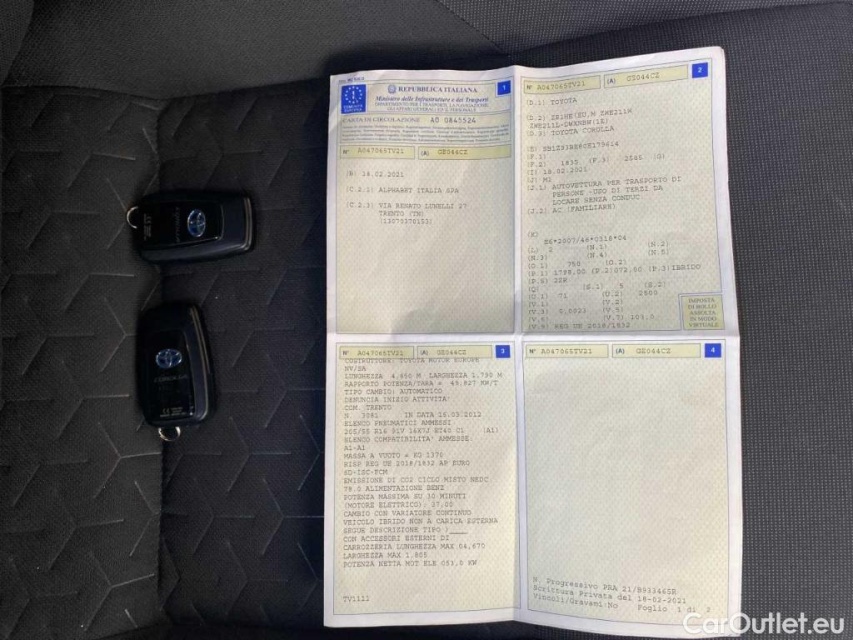 REPUBBLICA ITALIANA
Ministero delle Infrastrutture e dei Trasporti
DIPARTIMENTO PER I TRASPORTI, LA NAVIGAZIONE
GLI AFFARI GENERALI ED IL PERSONALE
CARTA DI CIRCOLAZIONE AO 0845524
1
N° A047065TV21 (A) GE044CZ
(B) 18.02.2021
(C.2.1) ALPHABET ITALIA SPA
(C.2.3) VIA RENATO LUNELLI 27
TRENTO (TN)
2
N° A047065TV21 (A) GE044CZ
(D.1) TOYOTA
(D.3) TOYOTA COROLLA
(F.2) 1835 (F.3) 2545 (G)
(I) 18.02.2021
(J) M1
(J.1) AUTOVETTURA PER TRASPORTO DI
PERSONE -USO DI TERZI DA
LOCARE SENZA CONDUC.
(J.2) AC (FAMILIARE)
(K)
(L) 2 (N.1) (N.2)
(N.3) (N.4) (N.5)
(O.1) 750 (O.2)
(P.1) 1798,00 (P.2)072,00 (P.3)IBRIDO
(P.5) 2ZR
(Q) (S.1) 5 (S.2)
(U.1) 71 (U.2) 2600
(V.1) (V.2)
(V.9) REG UE 2018/1832
IMPOSTA
DI BOLLO
ASSOLTA
IN MODO
VIRTUALE
3
N° A047065TV21 (A) GE044CZ
COSTRUTTORE: TOYOTA MOTOR EUROPE
NV/SA
LUNGHEZZA 4.650 M LARGHEZZA 1.790 M
RAPPORTO POTENZA/TARA = 49.827 KW/T
TIPO CAMBIO: AUTOMATICO
DENUNCIA INIZIO ATTIVITA'
COM. TRENTO
N 3081 IN DATA 15.03.2012
ELENCO PNEUMATICI AMMESSI
205/55 R16 91V 16X7J ET40 C1 (A1)
ELENCO COMPATIBILITA' AMMESSE
A1-A1
MASSA A VUOTO = KG 1370
RISP REG UE 2018/1832 AP EURO
6D-ISC-FCM
EMISSIONE DI CO2 CICLO MISTO NEDC
78.0 ALIMENTAZIONE BENZ
POTENZA MASSIMA SU 30 MINUTI
(MOTORE ELETTRICO): 37,00
CAMBIO CON VARIATORE CONTINUO
VEICOLO IBRIDO NON A CARICA ESTERNA
SEGUE DESCRIZIONE TIPO :____
CON ACCESSORI ESTERNI DI
CARROZZERIA LUNGHEZZA MAX 04,670
LARGHEZZA MAX 1,805
POTENZA NETTA MOT ELE 053,0 KW
TV1121
4
N° A047065TV21 (A) GE044CZ
N. Progressivo PRA 21/B933465R
Scrittura Privata del 18-02-2021
Vincoli/Gravami:No Foglio 1 di 2
CarOutlet.eu